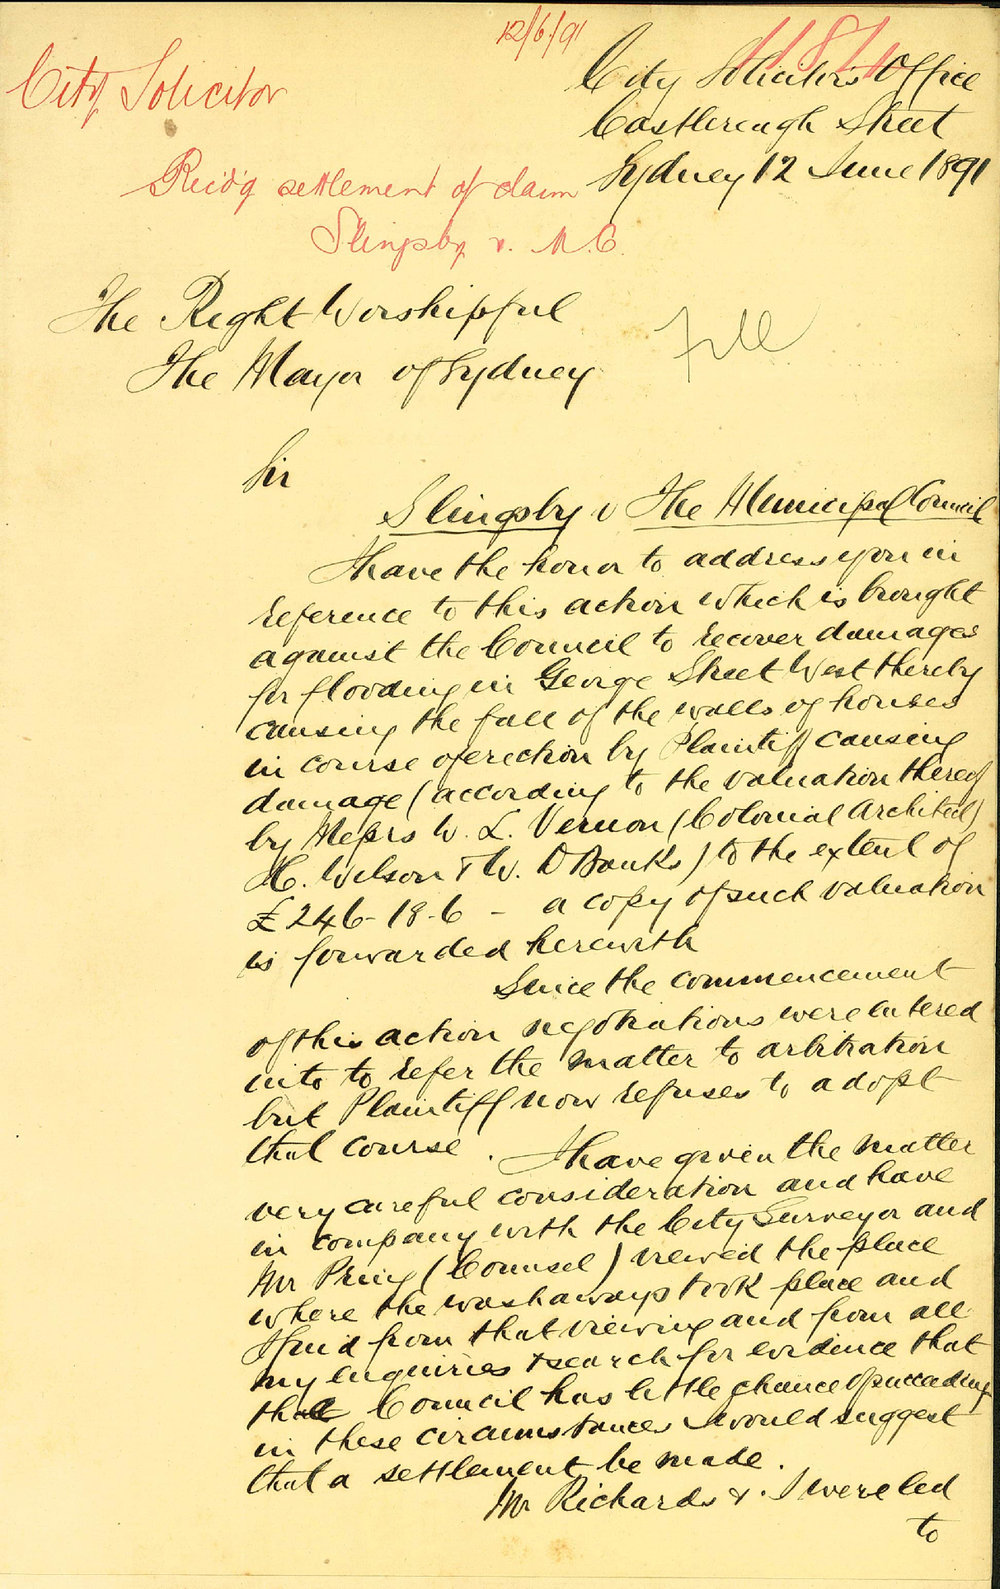 12/6/91
1184
City Solicitor
City Solicitor's Office
Castlereagh Street
Sydney 12 June 1891
settlement of claim
Slingsby v. M.C.
The Right Worshipful
The Mayor of Sydney
File
Sir
Slingsby v The Municipal Council
I have the honor to address you in
reference to this action which is brought
against the Council to recover damages
for flooding in George Street West thereby
causing the fall of the walls of houses
in course of erection by Plaintiff causing
damage (according to the valuation thereof
by Messrs W. L. Vernon (Colonial Architect)
H. Wilson & W. D Banks) to the extent of
£246-18-6 - a copy of such valuation
is forwarded herewith
Since the commencement
of this action negotiations were entered
into to refer the matter to arbitration
but Plaintiff now refuses to adopt
that course. I have given the matter
very careful consideration and have
in company with the City Surveyor and
Mr Pring (Counsel) viewed the place
where the washaways took place and
I find from that viewing and from all
my enquiries & search for evidence that
the Council has little chance of succeeding
in these circumstances I would suggest
that a settlement be made.
Mr Richards & I were led
to